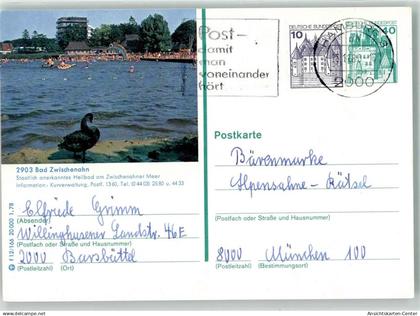 Post-
damit
man
voneinander
hört
DEUTSCHE BUNDESPOST
10
40
HAMBURG
2000
2903 Bad Zwischenahn
Staatlich anerkanntes Heilbad am Zwischenahner Meer
Information: Kurverwaltung, Postf. 1360, Tel. (04403) 2580 u. 4433
Postkarte
Bärenmarke
Alpensahne-Rätsel
(Postfach oder Straße und Hausnummer)
8000 München 100
(Postleitzahl) (Bestimmungsort)
Elfriede Grimm
(Absender)
Willinghusener Landstr. 46E
(Postfach oder Straße und Hausnummer)
2000 Barsbüttel
(Postleitzahl) (Ort)
20 000 1.78
www.ansichtskarten-center.de
Ansichtskarten-Center